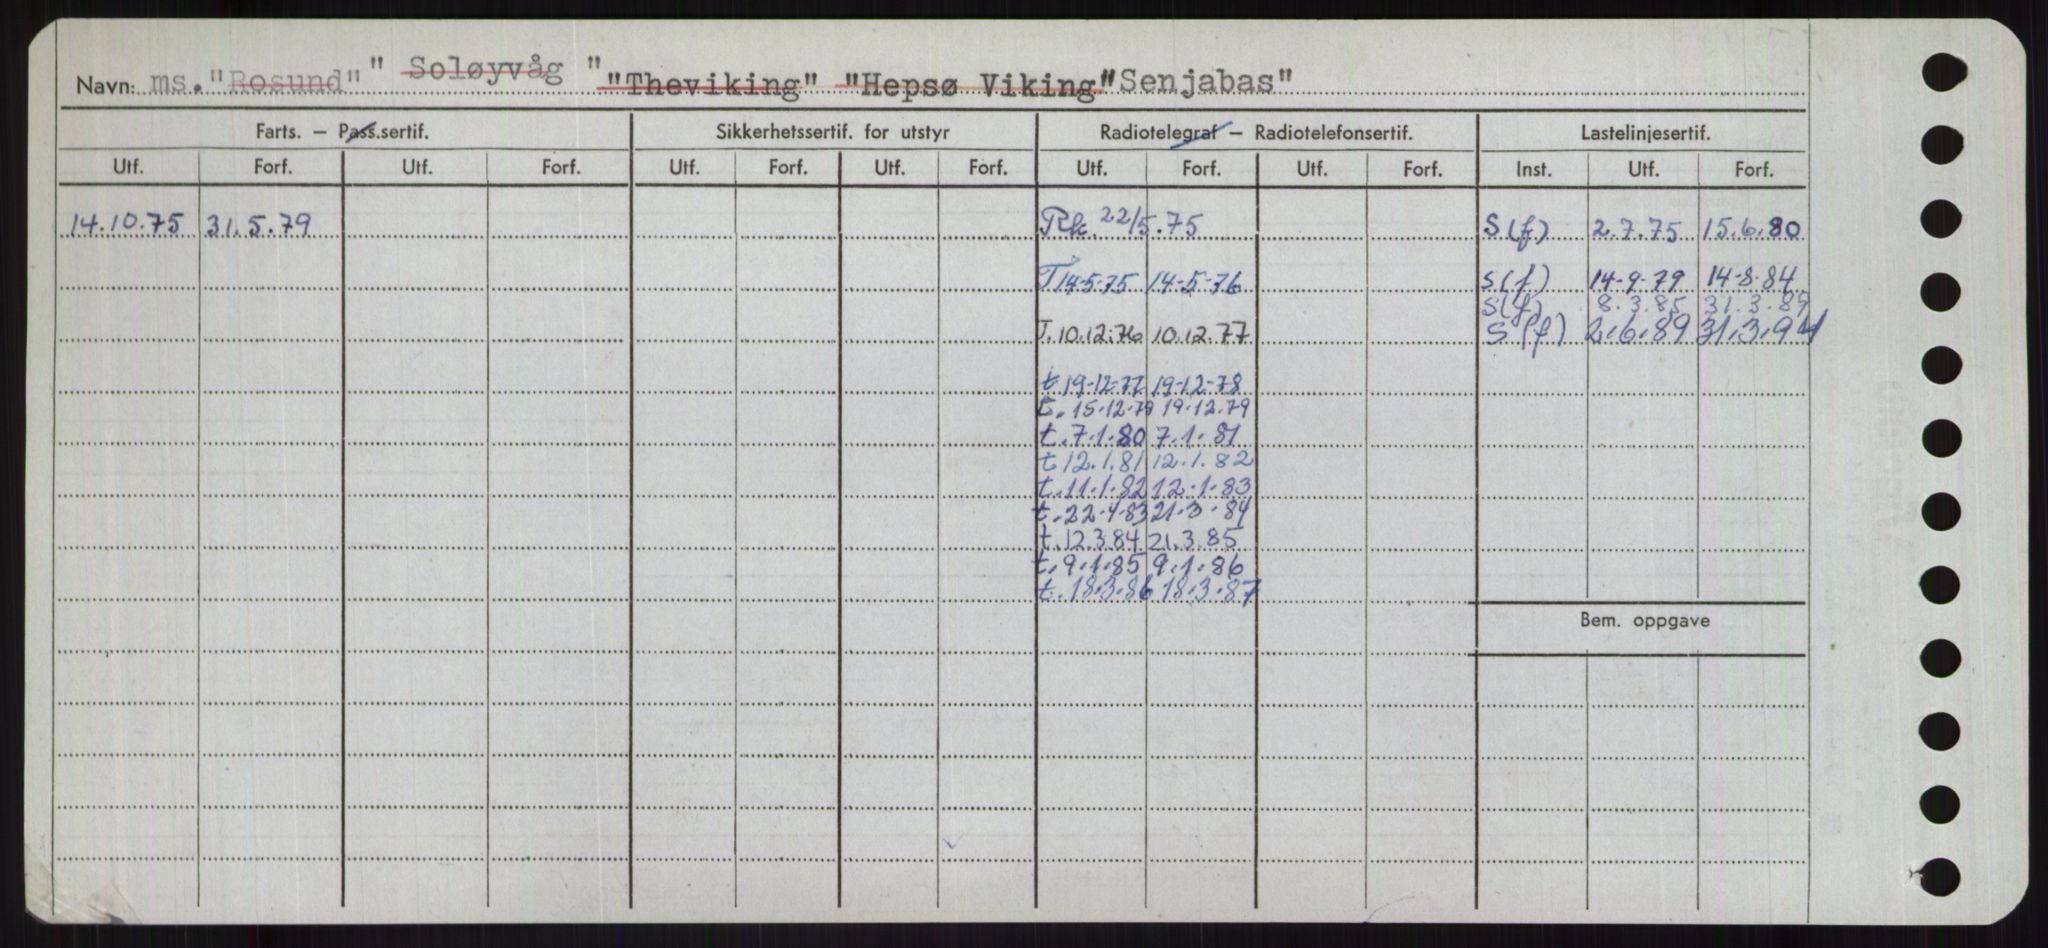 Navn: ms. "Rosund" " Soløyvåg " "Theviking" "Hepsø Viking" "Senjabas"
Farts. — Pass.sertif. Sikkerhetssertif. for utstyr Radiotelegraf — Radiotelefonsertif. Lastelinjesertif.
Utf. Forf. Utf. Forf. Utf. Forf. Utf. Forf. Utf. Forf. Utf. Forf. Inst. Utf. Forf.
14.10.75 31.5.79 Rk. 22/5.75 S(f) 2.7.75 15.6.80
T 14-5-75 14-5-76 S(f) 14-9-79 14-8-84
S(f) 8.3.85 31.3.89
T. 10.12.76 10.12.77 S(f) 2.6.89 31.3.94
t 19-12-77 19-12-78
t. 15.12.79 19.12.79
t. 7.1.80 7.1.81
t 12.1.81 12.1.82
t. 11.1.82 12.1.83
t. 22.4.83 21.3.84
t. 12.3.84 21.3.85
t. 9.1.85 9.1.86
t. 18.3.86 18.3.87
Bem. oppgave